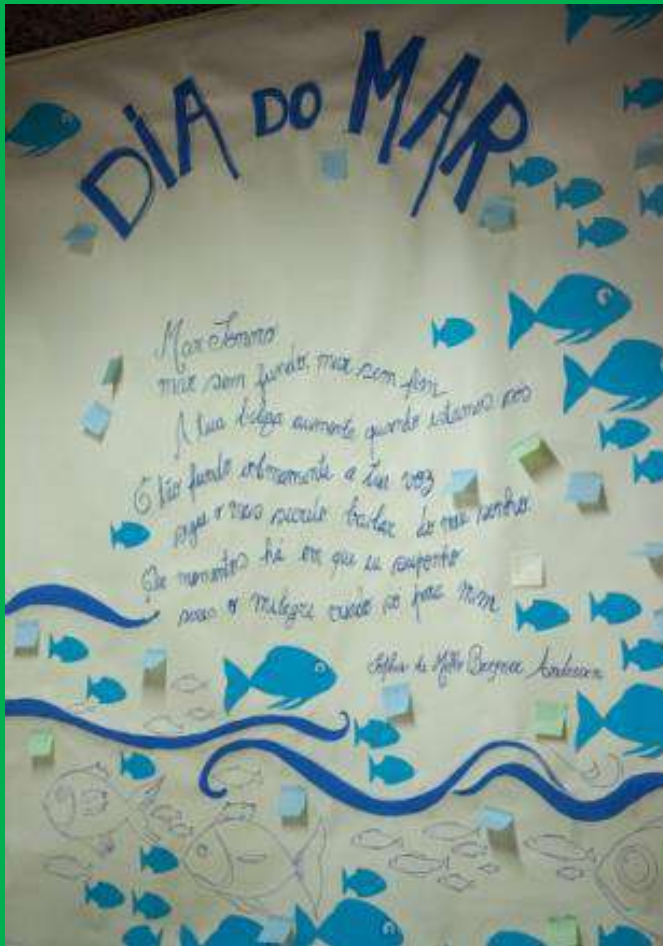 DIA DO MAR
Mar Sonoro
mar sem fundo, mar sem fim
A tua beleza aumenta quando estamos sós
E tão fundo intimamente a tua voz
segue o mais secreto bailar do meu sonho
Que momentos há em que eu suponho
seres o milagre criado só para mim
Sophia de Mello Breyner Andresen